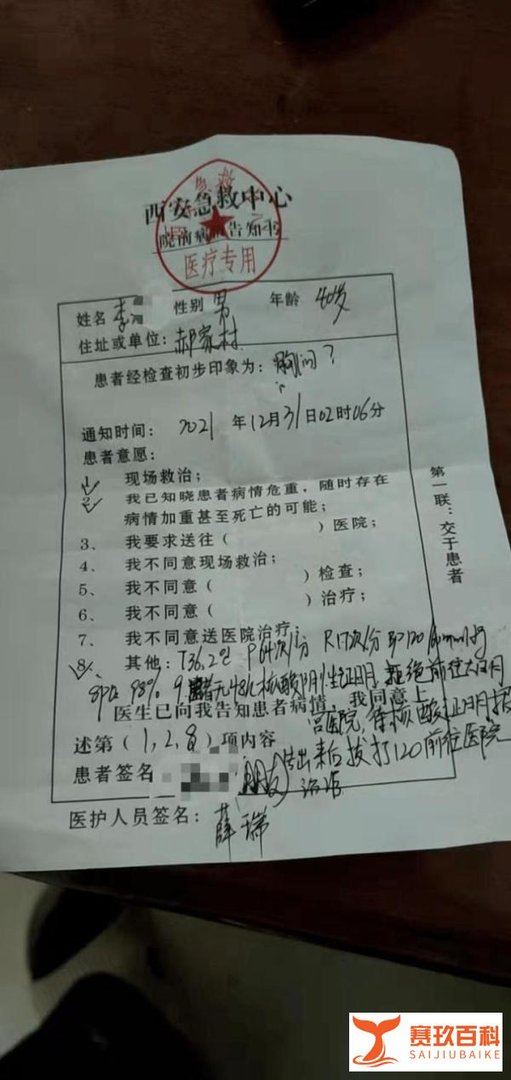 西安急救中心
院前病情告知书
医疗专用
姓名 李 性别 男 年龄 40岁
住址或单位: 郝家村
患者经检查初步印象为: 胸闷?
通知时间: 2021 年12月31日02时06分
患者意愿:
1、 现场救治;
2、 我已知晓患者病情危重,随时存在
病情加重甚至死亡的可能;
3、 我要求送往( )医院;
4、 我不同意现场救治;
5、 我不同意( )检查;
6、 我不同意( )治疗;
7、 我不同意送医院治疗;
8、 其他: T36.2℃ P64次/分 R17次/分 BP120/ mmHg
SPO2 98% 患者无48h核酸阴性证明, 拒绝前往大明
宫医院, 待核酸证明报
告出来后拨打120前往医院
治疗
医生已向我告知患者病情,我同意上
述第(1,2,8)项内容
患者签名 (朋友)
医护人员签名: 薛瑞
第一联:交于患者
赛玖百科
SAIJIUBAIKE